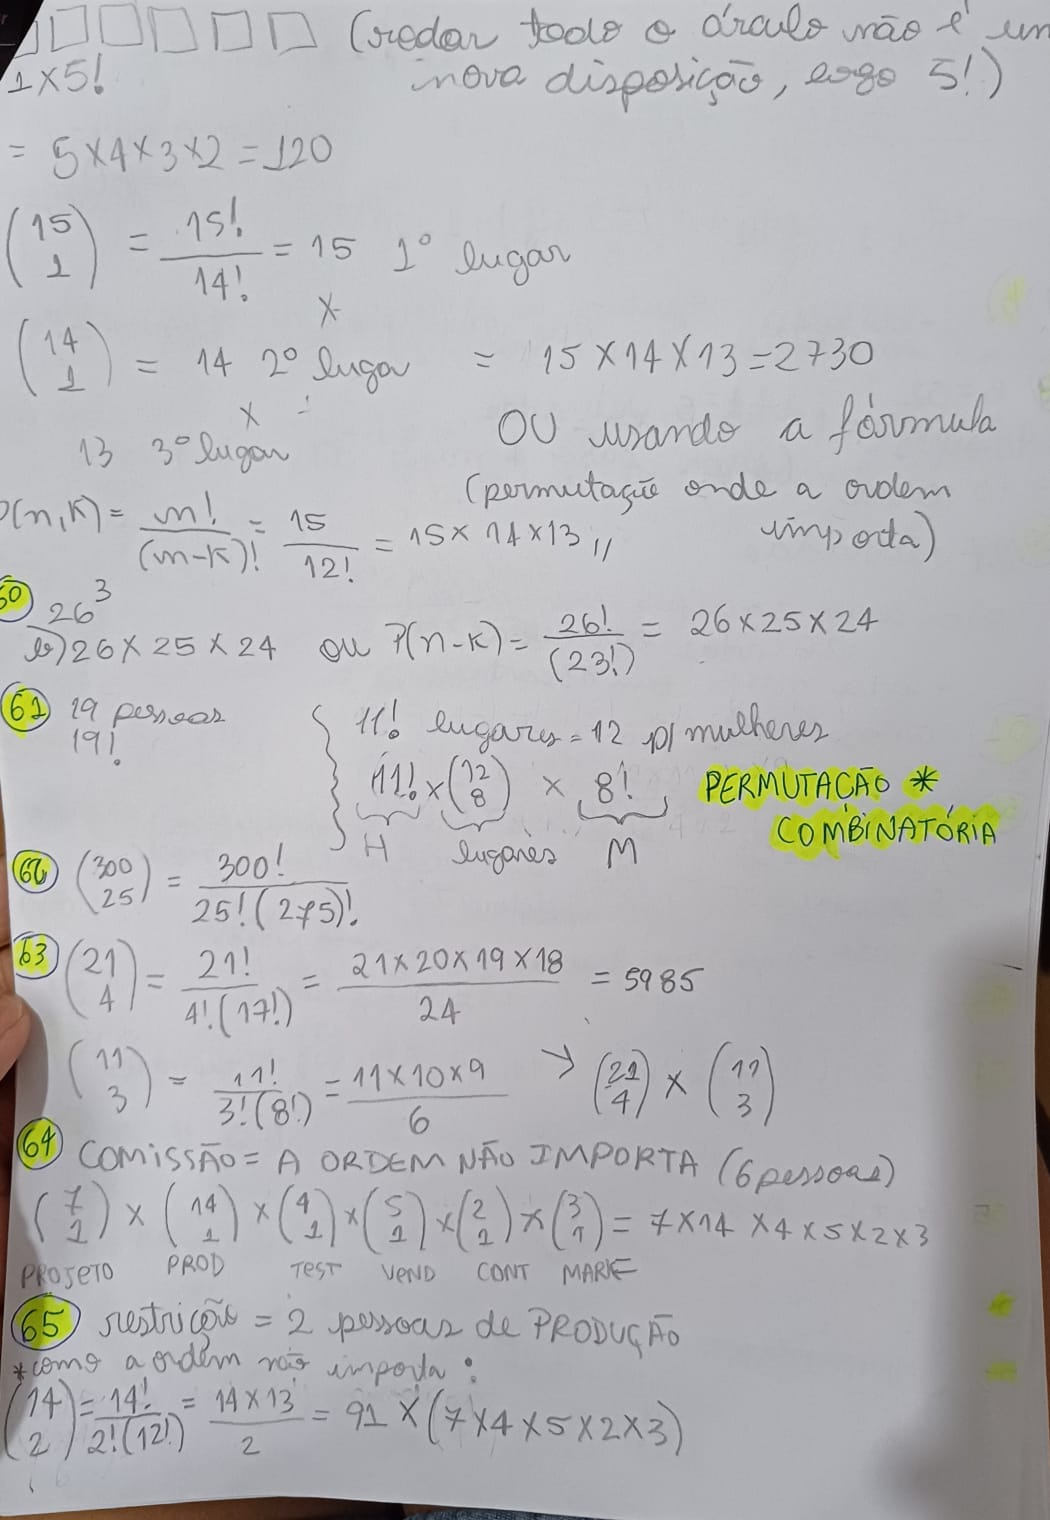 (rodar todo o círculo não é um
1×5! nova disposição, logo 5!)
= 5×4×3×2 = 120
(15 1) = 15!/14! = 15 1º lugar
×
(14 1) = 14 2º lugar = 15×14×13 = 2730
×
13 3º lugar OU usando a fórmula
(permutação onde a ordem importa)
P(n,k) = n!/(n-k)! = 15/12! = 15×14×13 //
60 26³
b) 26×25×24 ou P(n-k) = 26!/(23!) = 26×25×24
61 19 pessoas
19!
11! lugares = 12 p/ mulheres
11! × (12 8) × 8! PERMUTAÇÃO *
COMBINATÓRIA
H lugares M
62 (300 25) = 300!/25!(275)!
63 (21 4) = 21!/4!(17!) = 21×20×19×18/24 = 5985
(11 3) = 11!/3!(8!) = 11×10×9/6 → (21 4) × (11 3)
64 COMISSÃO = A ORDEM NÃO IMPORTA (6 pessoas)
(7 1) × (14 1) × (4 1) × (5 1) × (2 1) × (3 1) = 7×14×4×5×2×3
PROJETO PROD TEST VEND CONT MARKE
65 restrição = 2 pessoas de PRODUÇÃO
*como a ordem não importa:
(14 2) = 14!/2!(12!) = 14×13/2 = 91 × (7×4×5×2×3)